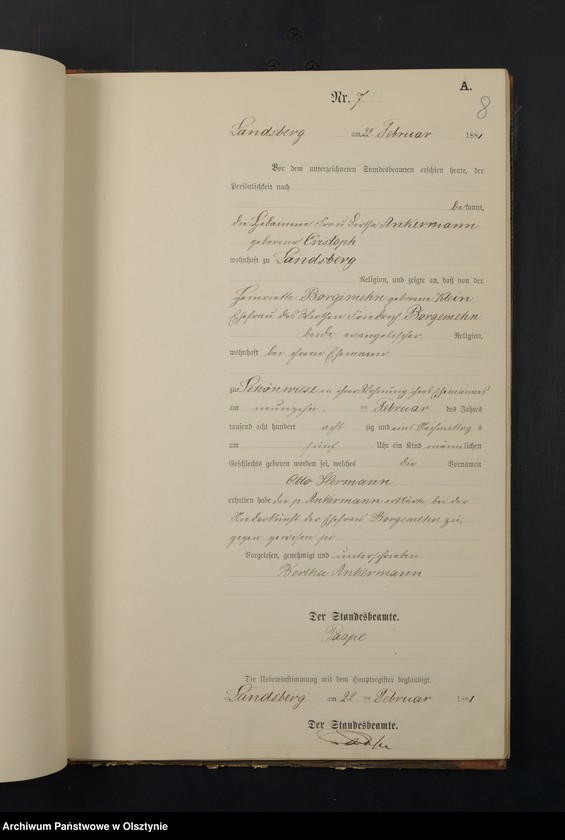 A.
8
Nr. 7
Landsberg am 22 Februar 1881
Vor dem unterzeichneten Standesbeamten erschien heute, der
Persönlichkeit nach
bekannt,
die Hebamme Frau Bertha Ankermann
geborene Cristoph
wohnhaft zu Landsberg
Religion, und zeigte an, daß von der
Henriette Borgemehn geborene Klein
Ehefrau des Friedrich Borgemehn
beide evangelischer Religion,
wohnhaft bei ihrem Ehemann
zu Schönwiese in ihrer Wohnung ihres Ehemannes
am neunzehn ten Februar des Jahres
tausend acht hundert acht zig und eins Nachmittag s
um fünf Uhr ein Kind männlichen
Geschlechts geboren worden sei, welches die Vornamen
Otto Hermann
erhalten habe die p. Ankermann erklärte, bei der
Niederkunft der Ehefrau Borgemehn zu
gegen gewesen sei
Vorgelesen, genehmigt und unterschrieben
Bertha Ankermann
Der Standesbeamte.
Die Uebereinstimmung mit dem Hauptregister beglaubigt.
Landsberg am 22 ten Februar 1881
Der Standesbeamte.
Archiwum Państwowe w Olsztynie